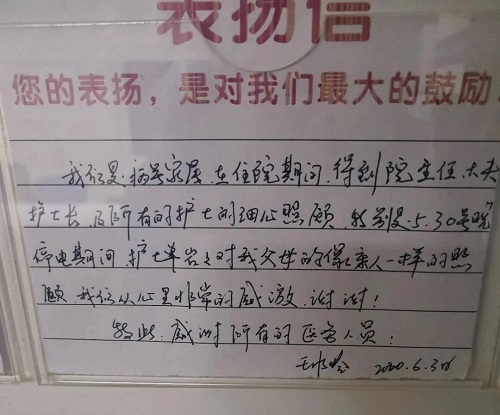 表扬信
您的表扬，是对我们最大的鼓励
我们是病号家属，在住院期间，得到院主任、大夫
护士长，及所有的护士的细心照顾，特别是5.30号晚
停电期间，护士单岩岩对我父母的像亲人一样的照
顾，我们从心里非常的感激，谢谢！
特此，感谢所有的医务人员：
2020.6.3日